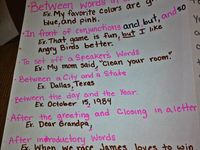 "Between Words in a
Ex. My favorite colors are g
blue, and pink.
*In front of conjunctions and but, and so
Ex. That game is fun, but I like
Angry Birds better.
To set off a Speaker's Words
Ex. My mom said, "Clean your room."
Between a City and a State
Ex. Dallas, Texas
Between the day and the Year.
Ex. October 15, 1984
After the greeting and Closing in a letter
Ex. Dear Grandpa,
After introductory Words
Ex. When we race James loves to win